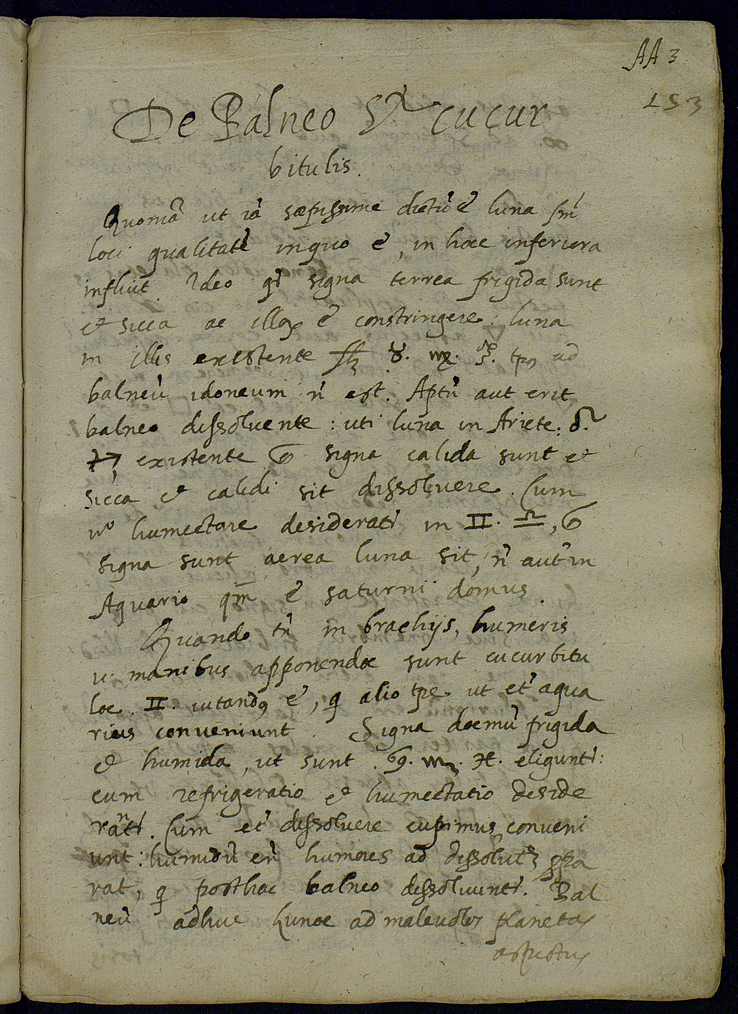 AA 3
153
De Balneo & cucur
bitulis.
Quoniā ut iā sæpissime dictū ē luna sm̄
loci qualitatē in quo ē, in hæc inferiora
influit Ideo q̄ signa terrea frigida sunt
et sicca ac illoꝝ ē constringere: luna
in illis existente ♉. ♍. ♑. ad
balneū idoneum n̄ est. Aptū aut erit
balneo dissolvente: uti luna in Ariete: ♌.
♐ existente signa calida sunt et
sicca et calidi sit dissolvere. Cum
v° humectare desideratr̄ in ♊. ♎,
signa sunt aerea luna sit, n̄ aut̄ in
Aquario qm̄ ē saturni domus.
Quando tn̄ in brachijs, humeris
v. manibus apponendæ sunt cucurbitu
læ. ♊. vitandꝰ ē, q alio tp̄e ut et̄ aqua
rius conveniunt Signa dæmū frigida
et humida, ut sunt ♋. ♏. ♓. eligunt̄:
cum refrigeratio et humectatio deside
rant̄. Cum et̄ dissolvere cupimus conveni
unt: humidū en̄ humores ad præpa
rat, q posthac balneo dissolvunt̄. Bal
neū adhuc Lunæ ad malevolos planetas
aspectus